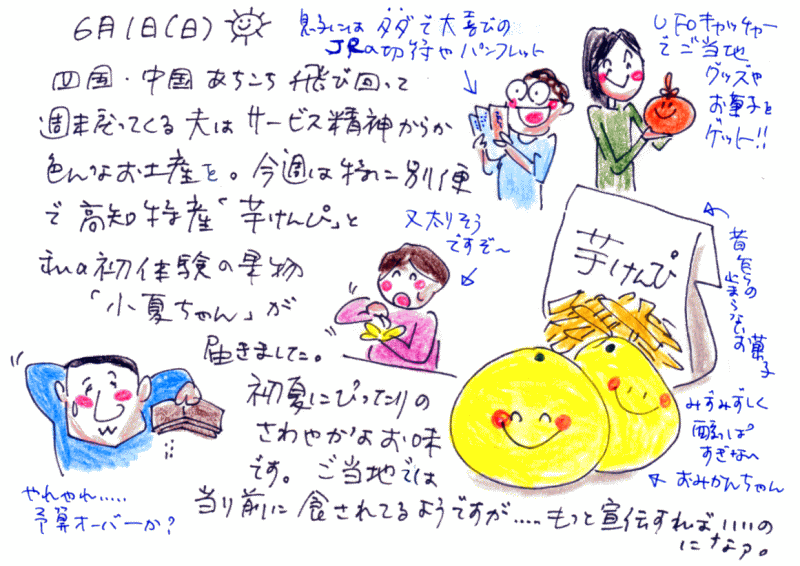 6月1日(日)
四国・中国あちこち飛び回って
週末戻ってくる夫はサービス精神からか
色んなお土産を。今週は特に別便
で高知特産「芋けんぴ」と
私の初体験の果物
「小夏ちゃん」が
届きました。
初夏にぴったりの
さわやかなお味
です。ご当地では
当り前に食されてるようですが.....もっと宣伝すればいいの
になァ。
息子にはタダで大喜びの
JRの切符やパンフレット
UFOキャッチャー
でご当地
グッズや
お菓子を
ゲット!!
又太りそう
ですぞ〜
芋けんぴ
昔からの
止まらないお菓子
みずみずしく
酸っぱ
すぎない
おみかんちゃん
やれやれ.....
予算オーバーか?